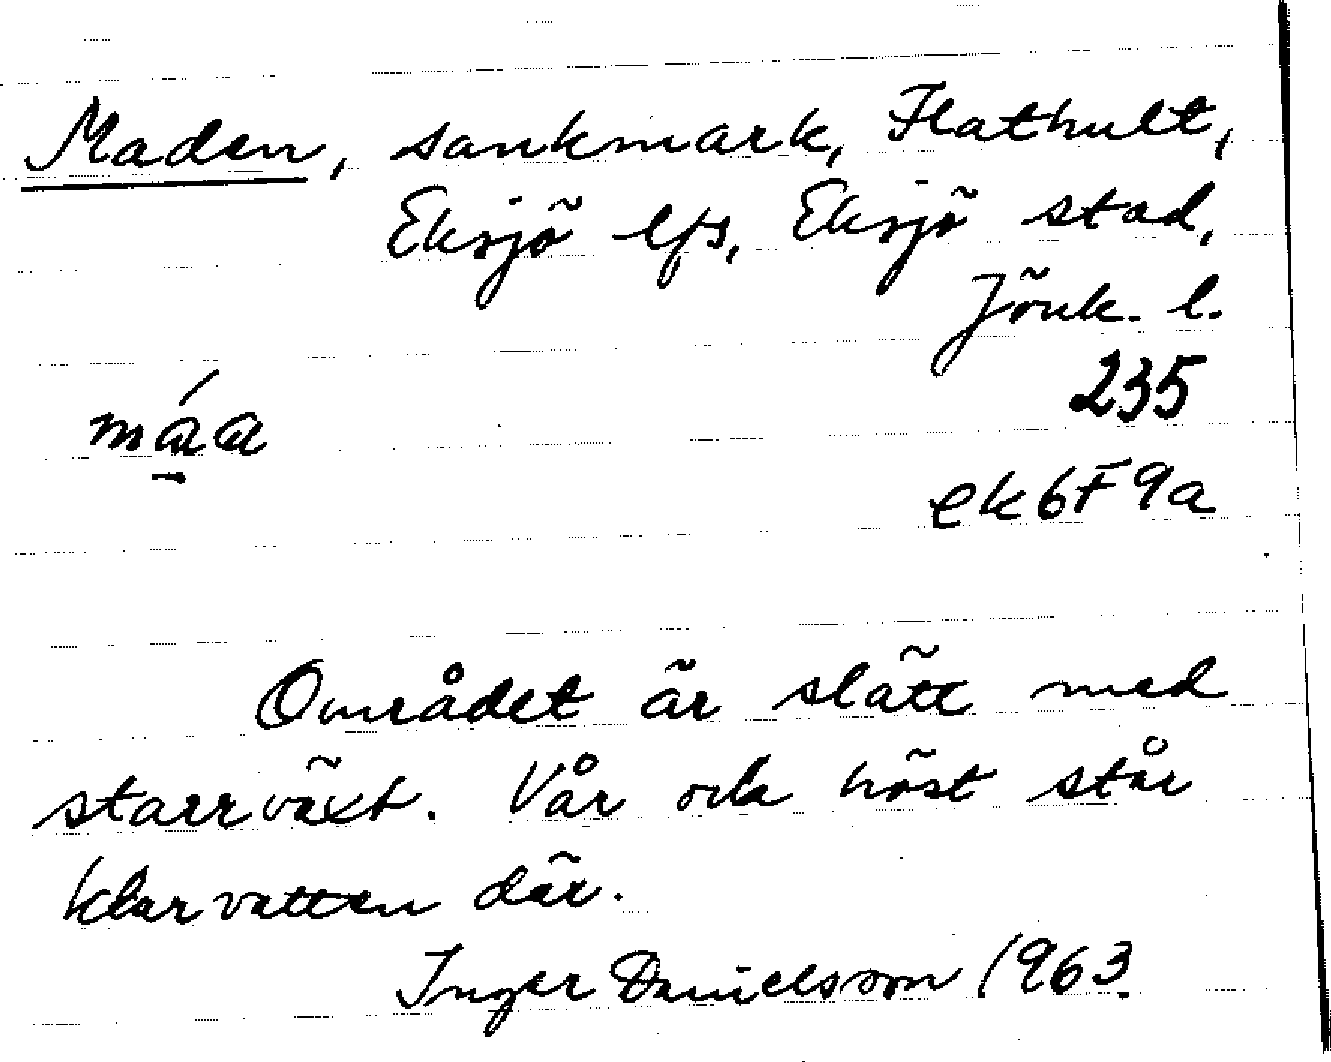 Maden, sankmark, Flathult,
Eksjö lfs, Eksjö stad,
Jönk. l.
235
máa
ek 6F9a
Området är slätt med
starrväxt. Vår och höst står
klarvatten där.
Inger Danielsson 1963.